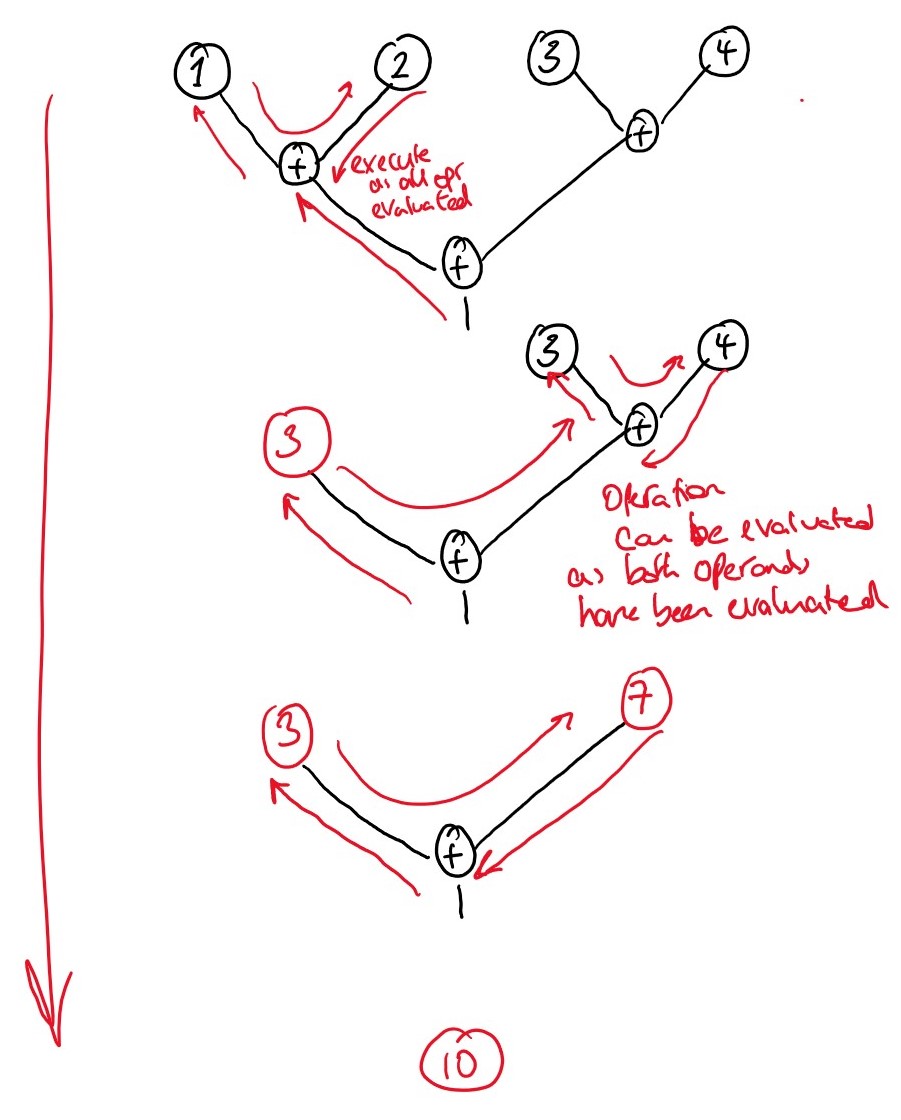 1 2 3 4
+ +
execute
as all opr
evaluated
+
3 4
3 +
Operation
can be evaluated
as both operands
have been evaluated
+
3 7
+
10